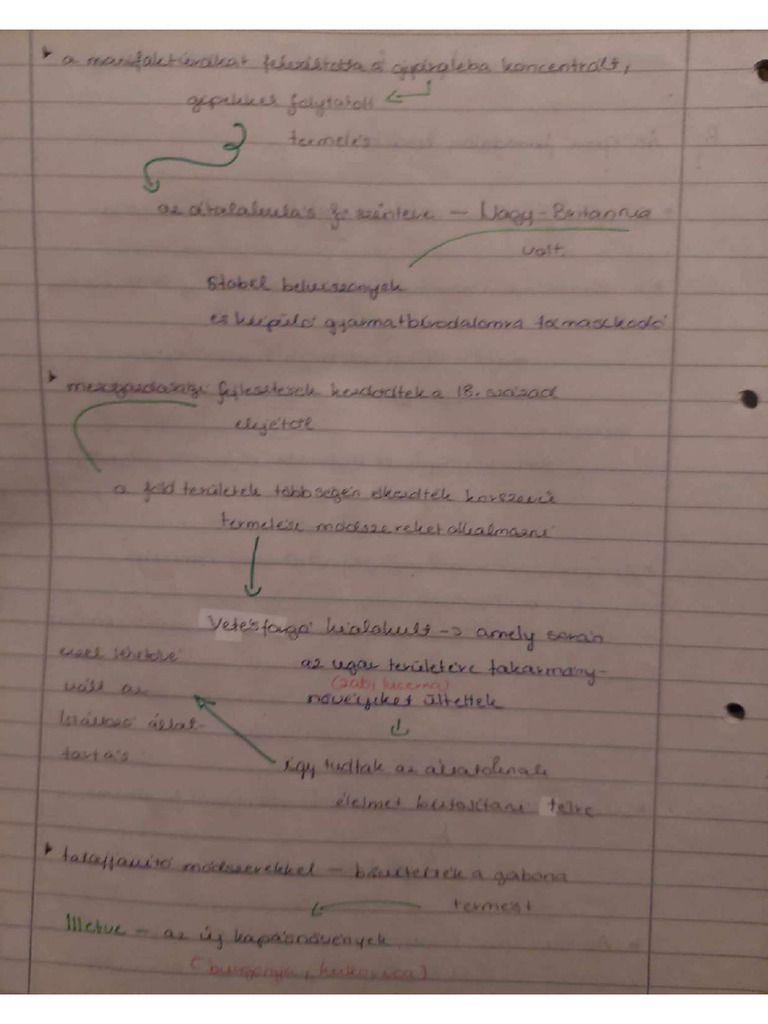 a manufaktúrákat felváltotta a gyárakba koncentrált,
gépekkel folytatott
termelés
az átalakulás fő színtere – Nagy-Britannia
volt.
Stabil belviszonyok
és kiépülő gyarmatbirodalomra támaszkodó
mezőgazdasági fejlesztések kezdődtek a 18. század
elejétől
a föld területek többségén elkezdték korszerű
termelési módszereket alkalmazni
Vetésforgó kialakult -> amely során
az ugar területére takarmány-
(zab, lucerna)
növényeket ültettek
így tudtak az állatoknak
élelmet biztosítani télre
ezzel lehetővé
vált az
istállózó állat-
tartás
talajjavító módszerekkel – bővítették a gabona
termést
Illetve – az új kapásnövények
(burgonya, kukorica)